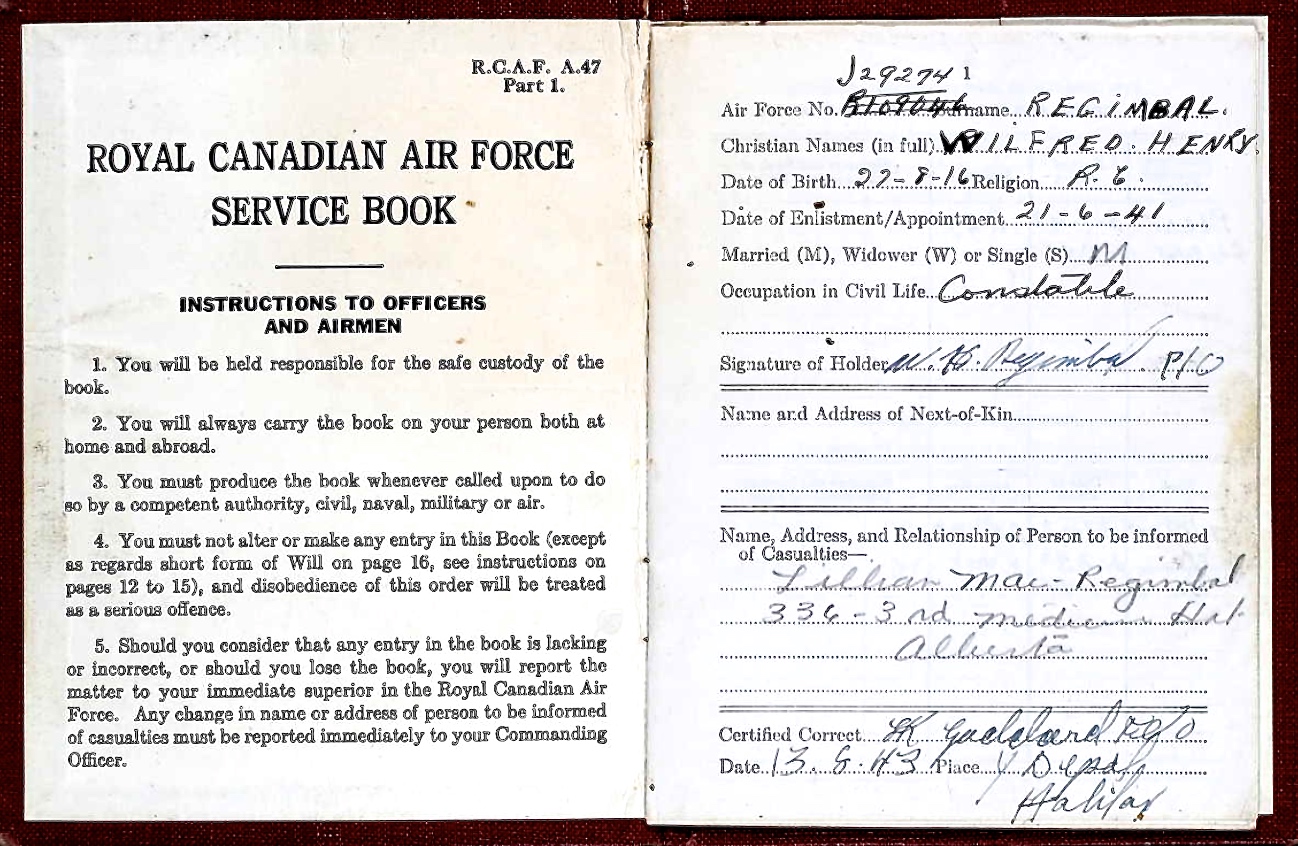 R.C.A.F. A.47
Part 1.
ROYAL CANADIAN AIR FORCE
SERVICE BOOK
INSTRUCTIONS TO OFFICERS
AND AIRMEN
1. You will be held responsible for the safe custody of the
book.
2. You will always carry the book on your person both at
home and abroad.
3. You must produce the book whenever called upon to do
so by a competent authority, civil, naval, military or air.
4. You must not alter or make any entry in this Book (except
as regards short form of Will on page 16, see instructions on
pages 12 to 15), and disobedience of this order will be treated
as a serious offence.
5. Should you consider that any entry in the book is lacking
or incorrect, or should you lose the book, you will report the
matter to your immediate superior in the Royal Canadian Air
Force. Any change in name or address of person to be informed
of casualties must be reported immediately to your Commanding
Officer.
J29274 1
Air Force No. R109046 Surname REGIMBAL.
Christian Names (in full) WILFRED. HENRY.
Date of Birth 27-8-16 Religion R.C.
Date of Enlistment/Appointment 21-6-41
Married (M), Widower (W) or Single (S) M
Occupation in Civil Life Constable
Signature of Holder W. H. Regimbal. P/O
Name and Address of Next-of-Kin
Name, Address, and Relationship of Person to be informed
of Casualties—
Lillian Mae Regimbal
336-3rd Medicine Hat
Alberta
Certified Correct
Date 13.8.43 Place Y Depot
Halifax